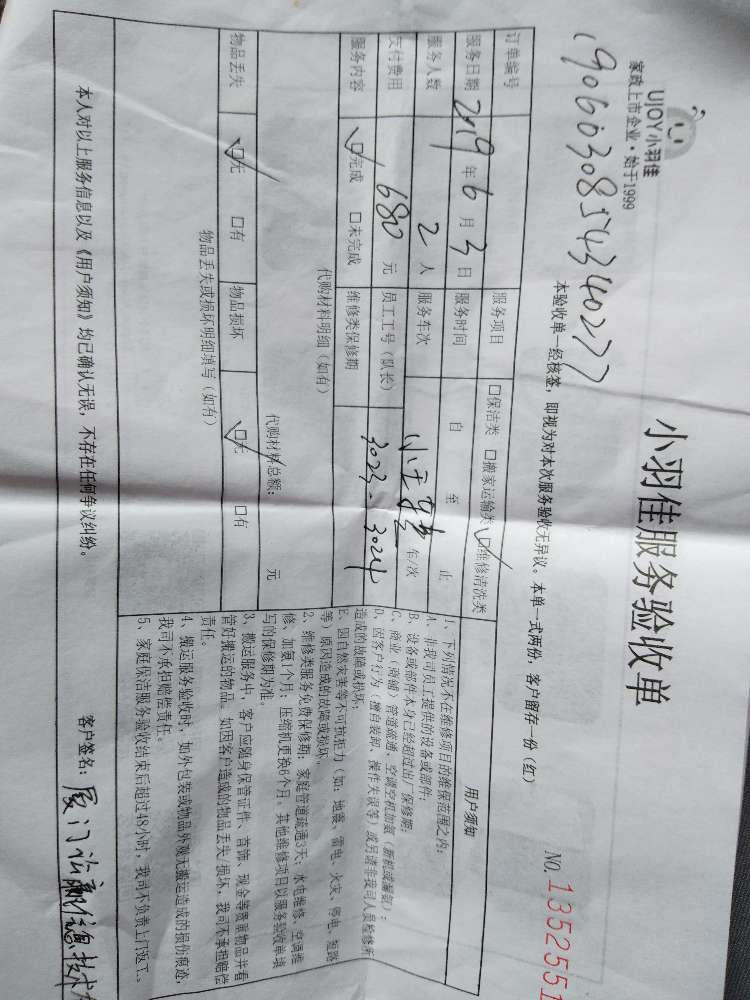 UJOY小羽佳
家政上市企业·始于1999
小羽佳服务验收单
NO.1352551
本验收单一经核签，即视为对本次服务验收无异议。本单一式两份，客户留存一份（红）
订单编号
1906030854340277
服务项目 □保洁类 □搬家运输类 ☑维修清洗类
服务日期 2019年6月3日 服务时间 自 至 止
服务人数 2人 服务车次 车/次
支付费用 680元 员工工号（队长） 3023. 3024
服务内容 ☑完成 □未完成 维修类保修期
代购材料明细（如有）
代购材料总额： 元
物品丢失 ☑无 □有 物品损坏 ☑无 □有
物品丢失或损坏明细填写（如有）
用户须知
1、下列情况不在维修项目的维保范围之内：
A、非我司员工提供的设备或部件；
B、设备或部件本身已经超过出厂保修期；
C、商业（商铺）管道疏通，空调空机加氨（新机或漏氨）；
D、因客户行为（擅自装卸、操作失误等）或另请非我司人员检修所
造成的故障或损坏；
E、因自然灾害等不可抗拒力（如：地震、雷电、火灾、停电、短路
等）原因造成的故障或损坏。
2、维修类服务免费保修期：家庭管道疏通3天；水电维修、空调维
修、加氨1个月；压缩机更换6个月。其他维修项目以服务验收单填
写的保修期为准。
3、搬运服务中，客户应随身保管证件、首饰、现金等贵重物品并看
管好搬运的物品。如因客户造成的物品丢失/损坏，我司不承担赔偿
责任。
4、搬运服务验收时，如外包装或物品外观无搬运造成的损伤痕迹，
我司不承担赔偿责任。
5、家庭保洁服务验收结束后超过48小时，我司不负责上门返工。
本人对以上服务信息以及《用户须知》均已确认无误，不存在任何争议纠纷。
客户签名：厦门 信息技术